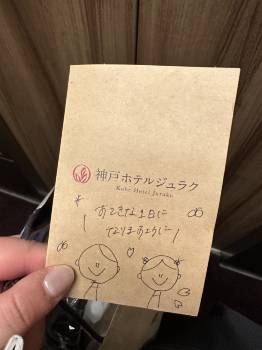 神戸ホテルジュラク
Kobe Hotel Juraku
すてきな1日に
なりますように